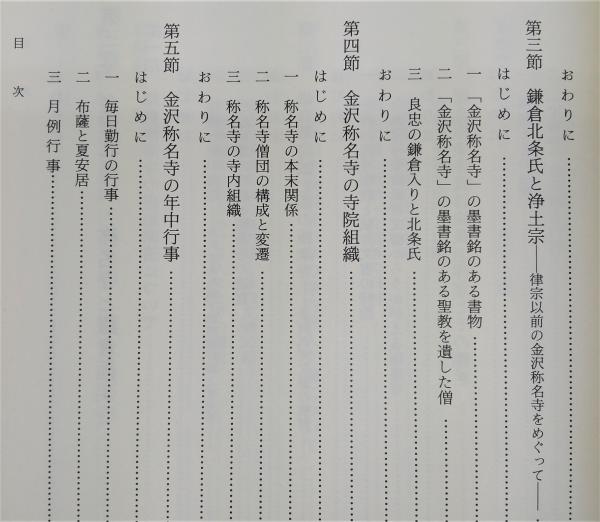 おわりに……………………………
第三節　鎌倉北条氏と浄土宗――律宗以前の金沢称名寺をめぐって――
はじめに……………………………
一　「金沢称名寺」の墨書銘のある書物……………………………
二　「金沢称名寺」の墨書銘のある聖教を遺した僧……………………………
三　良忠の鎌倉入りと北条氏……………………………
おわりに……………………………
第四節　金沢称名寺の寺院組織……………………………
はじめに……………………………
一　称名寺の本末関係……………………………
二　称名寺僧団の構成と変遷……………………………
三　称名寺の寺内組織……………………………
おわりに……………………………
第五節　金沢称名寺の年中行事……………………………
はじめに……………………………
一　毎日勤行の行事……………………………
二　布薩と夏安居……………………………
三　月例行事……………………………
目次